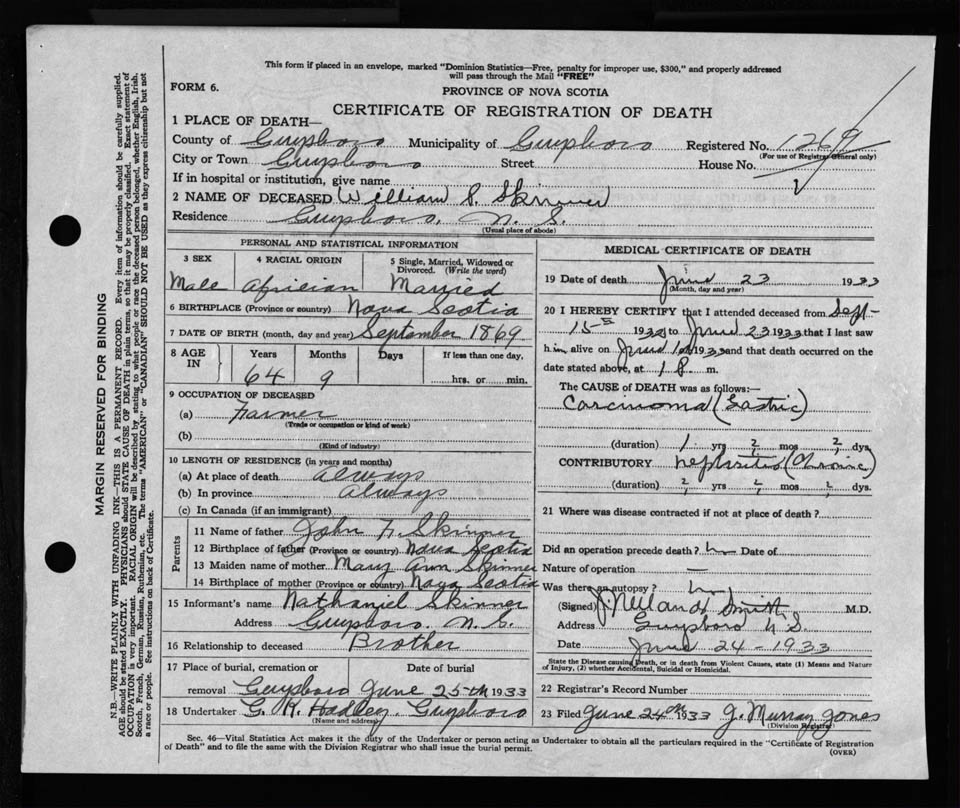 This form if placed in an envelope, marked "Dominion Statistics—Free, penalty for improper use, $300," and properly addressed
will pass through the Mail "FREE"
FORM 6.
PROVINCE OF NOVA SCOTIA
CERTIFICATE OF REGISTRATION OF DEATH
1 PLACE OF DEATH—
County of Guysboro Municipality of Guysboro Registered No. 1269
(For use of Registrar General only)
City or Town Guysboro Street House No.
If in hospital or institution, give name
2 NAME OF DECEASED William S. Skinner
Residence Guysboro, N. S.
(Usual place of abode)
PERSONAL AND STATISTICAL INFORMATION
3 SEX 4 RACIAL ORIGIN 5 Single, Married, Widowed or Divorced. (Write the word)
Male African Married
6 BIRTHPLACE (Province or country) Nova Scotia
7 DATE OF BIRTH (month, day and year) September 1869
8 AGE IN Years Months Days If less than one day,
64 9 hrs. or min.
9 OCCUPATION OF DECEASED
(a) Farmer
(Trade or occupation or kind of work)
(b)
(Kind of industry)
10 LENGTH OF RESIDENCE (in years and months)
(a) At place of death always
(b) In province always
(c) In Canada (if an immigrant)
Parents
11 Name of father John F. Skinner
12 Birthplace of father (Province or country) Nova Scotia
13 Maiden name of mother Mary Ann Skinner
14 Birthplace of mother (Province or country) Nova Scotia
15 Informant's name Nathaniel Skinner
Address Guysboro. N. S.
16 Relationship to deceased Brother
17 Place of burial, cremation or Date of burial
removal Guysboro June 25th 1933
18 Undertaker G. K. Hadley Guysboro
(Name and address)
MEDICAL CERTIFICATE OF DEATH
19 Date of death June 23 1933
(Month, day and year)
20 I HEREBY CERTIFY that I attended deceased from Sept-
15th 1932 to June 23 1933 that I last saw
him alive on June 1933 and that death occurred on the
date stated above, at 1 P. m.
The CAUSE of DEATH was as follows:—
Carcinoma (Gastric)
(duration) 1 yrs 2 mos 2 dys
CONTRIBUTORY Nephritis (Chronic)
(duration) 2 yrs. 2 mos. 2 dys.
21 Where was disease contracted if not at place of death?
Did an operation precede death? Date of
Nature of operation —
Was there an autopsy?
(Signed) Smith M.D.
Address Guysboro N S.
Date June 24 - 1933
State the Disease causing Death, or in death from Violent Causes, state (1) Means and Nature
of Injury, (2) whether Accidental, Suicidal or Homicidal.
22 Registrar's Record Number
23 Filed June 24th 1933 J. Murray Jones
(Division Registrar)
Sec. 46—Vital Statistics Act makes it the duty of the Undertaker or person acting as Undertaker to obtain all the particulars required in the "Certificate of Registration
of Death" and to file the same with the Division Registrar who shall issue the burial permit.
(OVER)
MARGIN RESERVED FOR BINDING
N.B.—WRITE PLAINLY WITH UNFADING INK—THIS IS A PERMANENT RECORD. Every item of information should be carefully supplied.
AGE should be stated EXACTLY. PHYSICIANS should STATE CAUSE OF DEATH in plain terms, so that it may be properly classified. Exact statement of
OCCUPATION is very important. RACIAL ORIGIN will be described by stating to what people or race the deceased person belonged, whether English, Irish,
Scotch, French, German, Russian, Ruthenian, etc. The terms "AMERICAN" or "CANADIAN" SHOULD NOT BE USED as they express citizenship but not
a race or people. See instructions on back of Certificate.